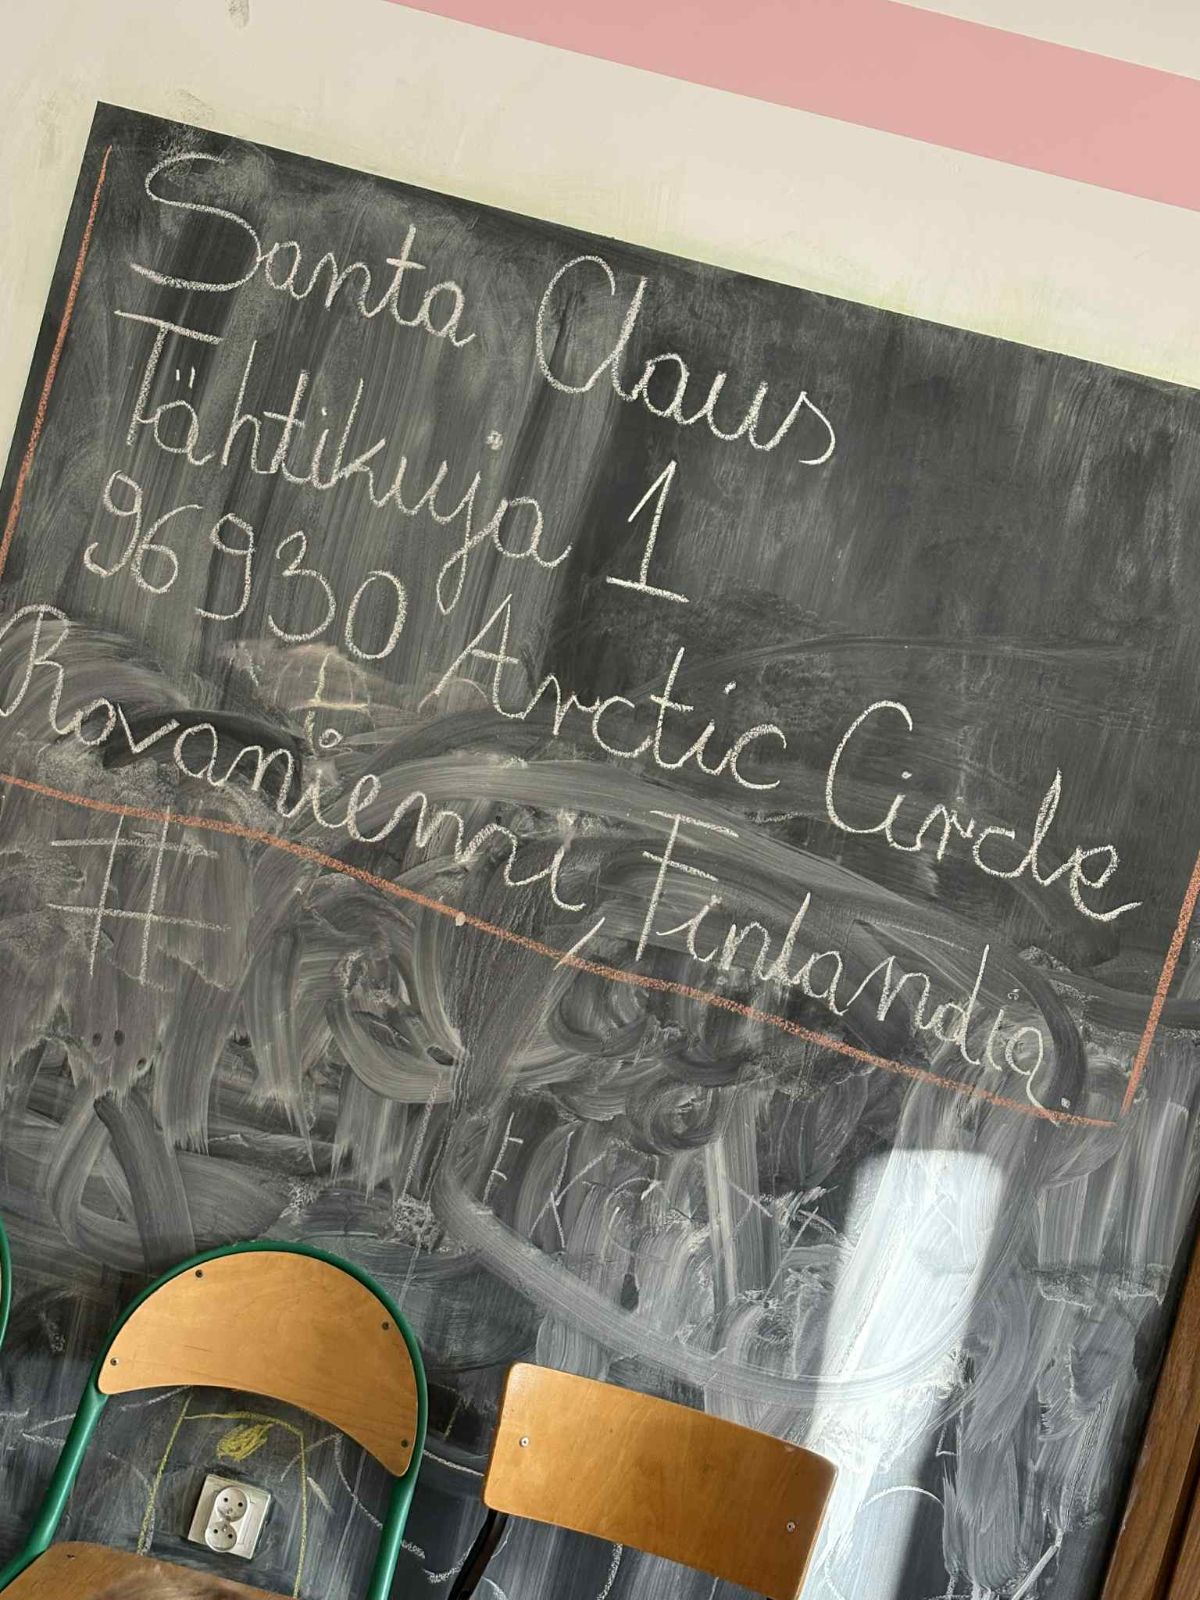 Santa Claus
Tähtikuja 1
96930 Arctic Circle
Rovaniemi, Finlandia